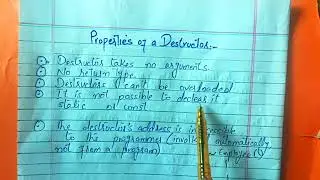 Properties of a Destructor:-
Destructor takes no arguments.
No return type.
Destructors can't be overloaded
It is not possible to declear it
static or const
The destructor's address is
to the programmer (invoke automatically
not from a program) ~ Employee()